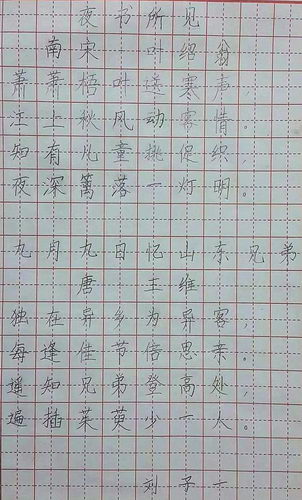 夜书所见
南宋 叶绍翁
萧萧梧叶送寒声，
江上秋风动客情。
知有儿童挑促织，
夜深篱落一灯明。
九月九日忆山东兄弟
唐 王维
独在异乡为异客，
每逢佳节倍思亲。
遥知兄弟登高处，
遍插茱萸少一人。
刘子一